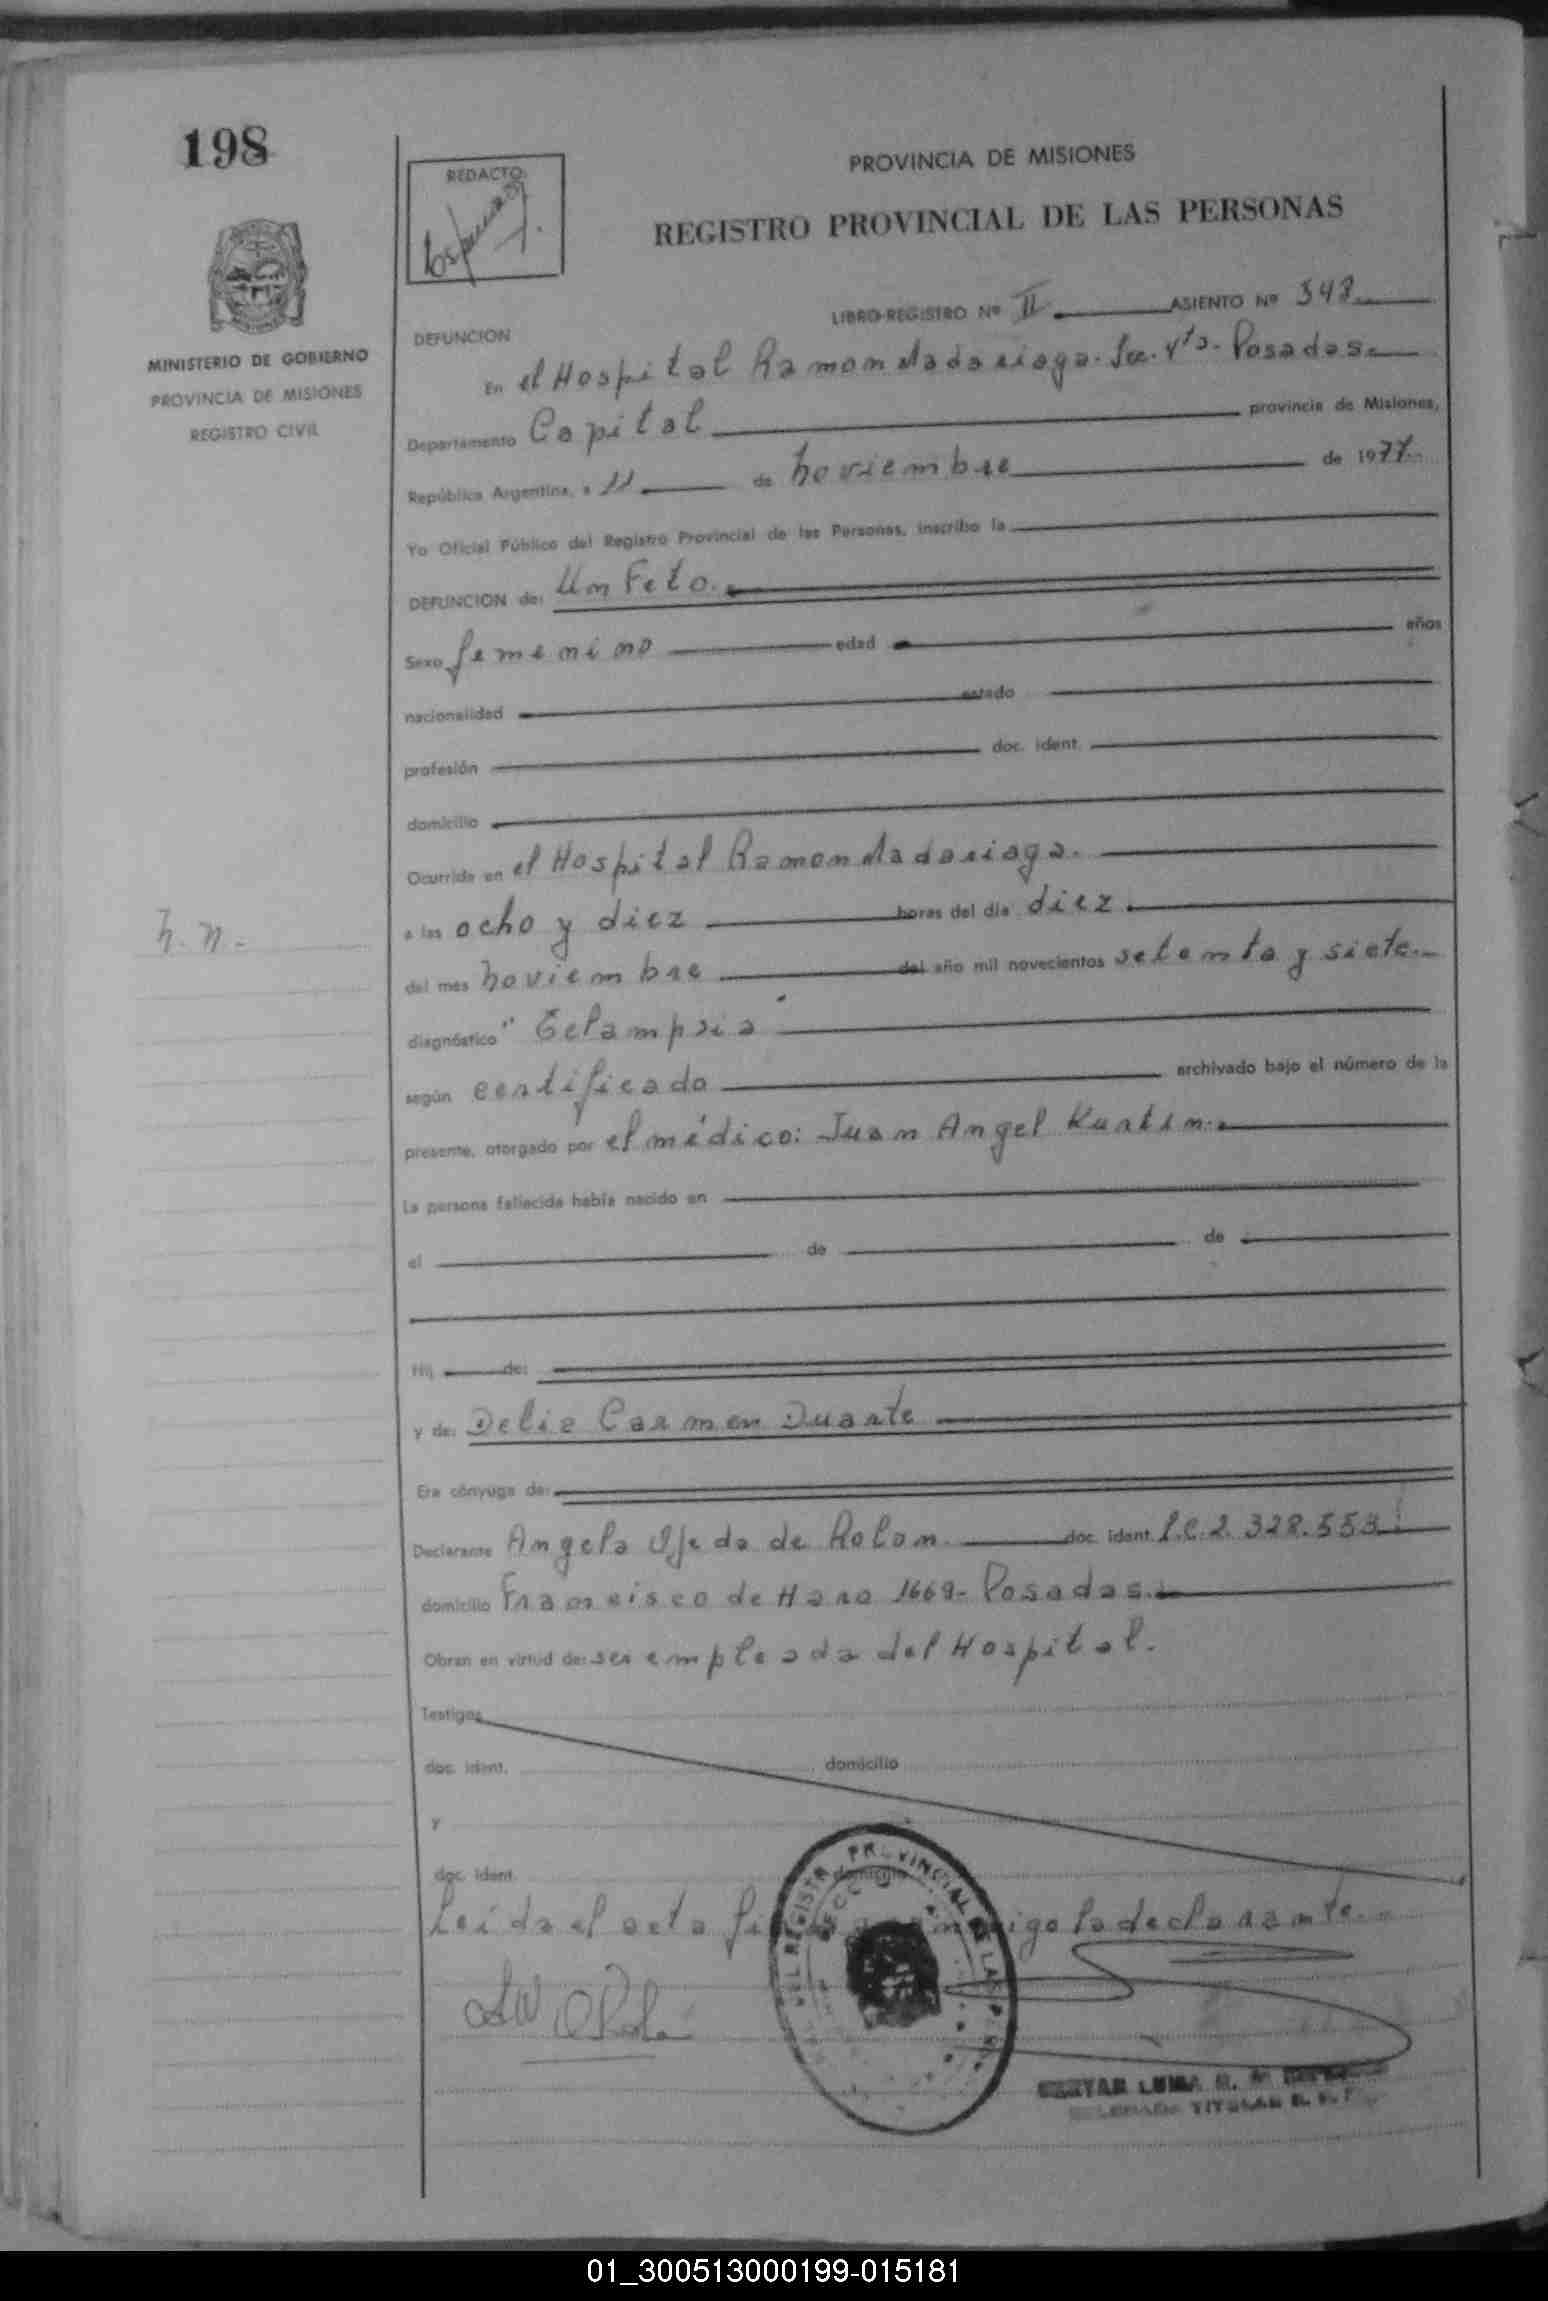 198
REDACTO:
PROVINCIA DE MISIONES
REGISTRO PROVINCIAL DE LAS PERSONAS
MINISTERIO DE GOBIERNO
PROVINCIA DE MISIONES
REGISTRO CIVIL
LIBRO-REGISTRO Nº II ASIENTO Nº 548
DEFUNCION
En el Hospital Ramon Madariaga. Sec. 4ta. Posadas.
Departamento Capital provincia de Misiones,
República Argentina, a 11 de noviembre de 1977.
Yo Oficial Público del Registro Provincial de las Personas, inscribo la
DEFUNCION de: Un Feto.
Sexo femenino edad años
nacionalidad estado
profesión doc. ident.
domicilio
Ocurrida en el Hospital Ramon Madariaga.
h.n.-
a las ocho y diez horas del día diez
del mes noviembre del año mil novecientos setenta y siete.
diagnóstico "Eclampsia"
según certificado archivado bajo el número de la
presente, otorgado por el médico: Juan Angel
La persona fallecida había nacido en
el de de
Hij de:
y de: Delia Carmen Duarte
Era cónyuge de:
Declarante Angela Ojeda de Rolon. doc. ident. L.C.2.328.553.
domicilio Francisco de Haro 1669- Posadas.
Obran en virtud de: ser empleada del Hospital.
Testigos
doc. ident. domicilio
y
doc. ident. domicilio
Leída el acta conmigo la declarante.
REGISTRO PROVINCIAL DE LAS
TITULAR
01_300513000199-015181